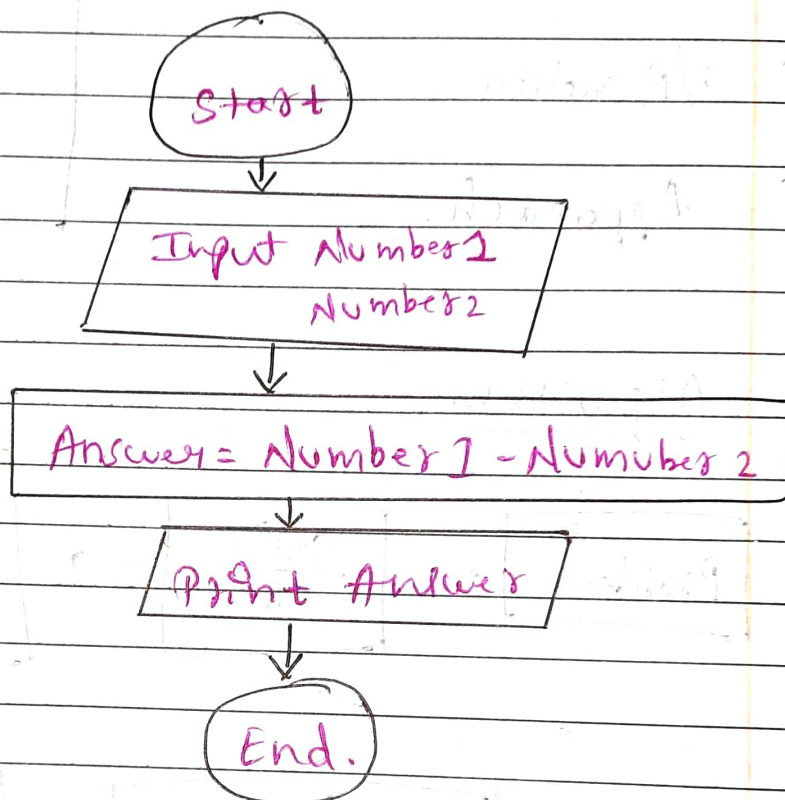 Start
Input Number1
Number2
Answer = Number 1 - Numuber 2
Print Answer
End.